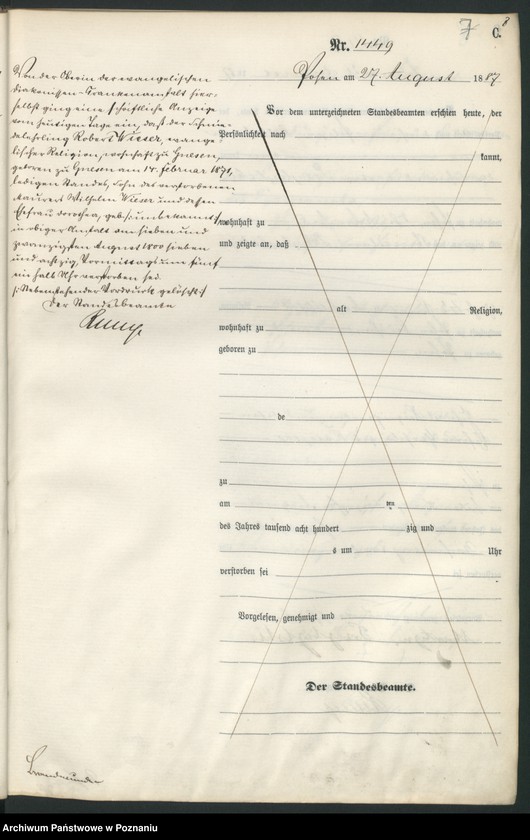 7
8
C.
Nr. 1449
Posen am 27. August 1887
Von der Oberin der evangelischen
Diakonissen-Krankenanstalt hier-
selbst ging eine schriftliche Anzeige
vom heutigen Tage ein, daß der Schmie-
delehrling Robert Wieser, evange-
lischer Religion, wohnhaft zu Gnesen,
geboren zu Gnesen am 14. Februar 1871,
ledigen Standes, Sohn des verstorbenen
Maurers Wilhelm Wieser und dessen
Ehefrau Dorothea, geb. unbekannt,
in obiger Anstalt am sieben und
zwanzigsten August 1800 sieben
und achtzig, Vormittags um fünf
ein halb Uhr verstorben sei.
/: Nebenstehender Vordruck gelöscht :/
Der Standesbeamte
Vor dem unterzeichneten Standesbeamten erschien heute, der
Persönlichkeit nach
kannt,
wohnhaft zu
und zeigte an, daß
alt Religion,
wohnhaft zu
geboren zu
de
zu
am ten
des Jahres tausend acht hundert zig und
s um Uhr
verstorben sei
Vorgelesen, genehmigt und
Der Standesbeamte.
Archiwum Państwowe w Poznaniu